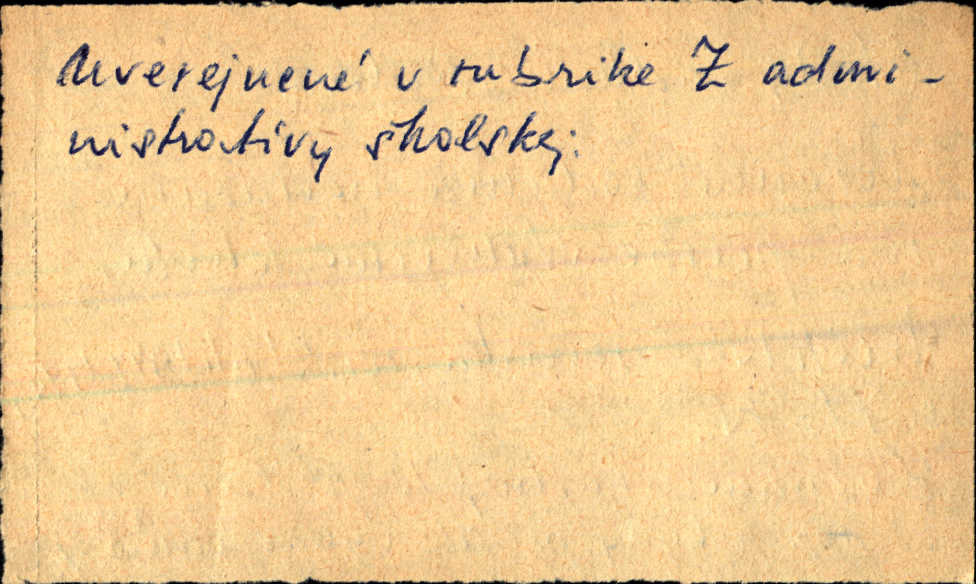 Uverejnené v rubrike Z admi-
nistratívy školskej.